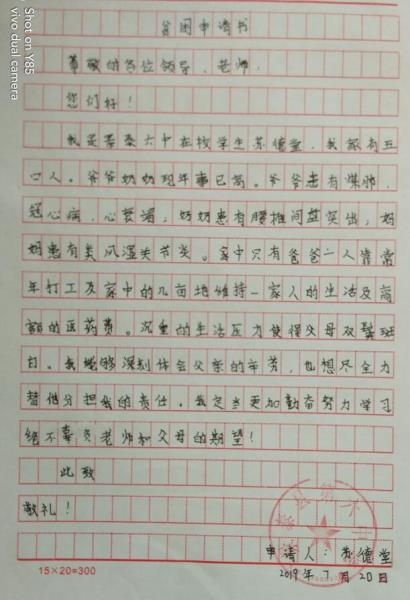 Shot on Y85
vivo dual camera
贫困申请书
尊敬的各位领导、老师：
您们好！
我是 六中在校学生苏德堂，我家有五
口人。爷爷奶奶现年事已高。爷爷患有 ，
冠心病，心衰竭，奶奶患有腰椎间盘突出，妈
妈患有类风湿关节炎。家中只有爸爸一人常常
年打工及家中的几亩地维持一家人的生活及高
额的医药费。沉重的生活压力使得父母双鬓斑
白。我能够深刻体会父亲的辛劳，也想尽全力
替他分担我的责任。我定当更加勤奋努力学习
绝不辜负老师和父母的期望！
此致
敬礼！
申请人：苏德堂
2019年7月20日
15×20=300